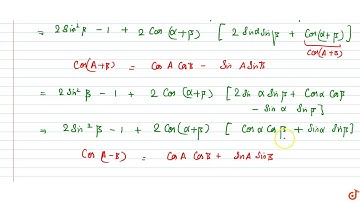 = 2 Sin²β - 1 + 2 Cos (α+β) [ 2 Sinα Sinβ + Cos(α+β) ]
Cos(A+B)
Cos(A+B) = Cos A Cos B - Sin A Sin B
= 2 Sin² β - 1 + 2 Cos (α+β) [ 2 Sin α Sin β + Cos α Cos β
- Sin α Sin β ]
= 2 Sin² β - 1 + 2 Cos (α+β) [ Cos α Cos β + Sin α Sin β ]
Cos (A-B) = Cos A Cos B + Sin A Sin B